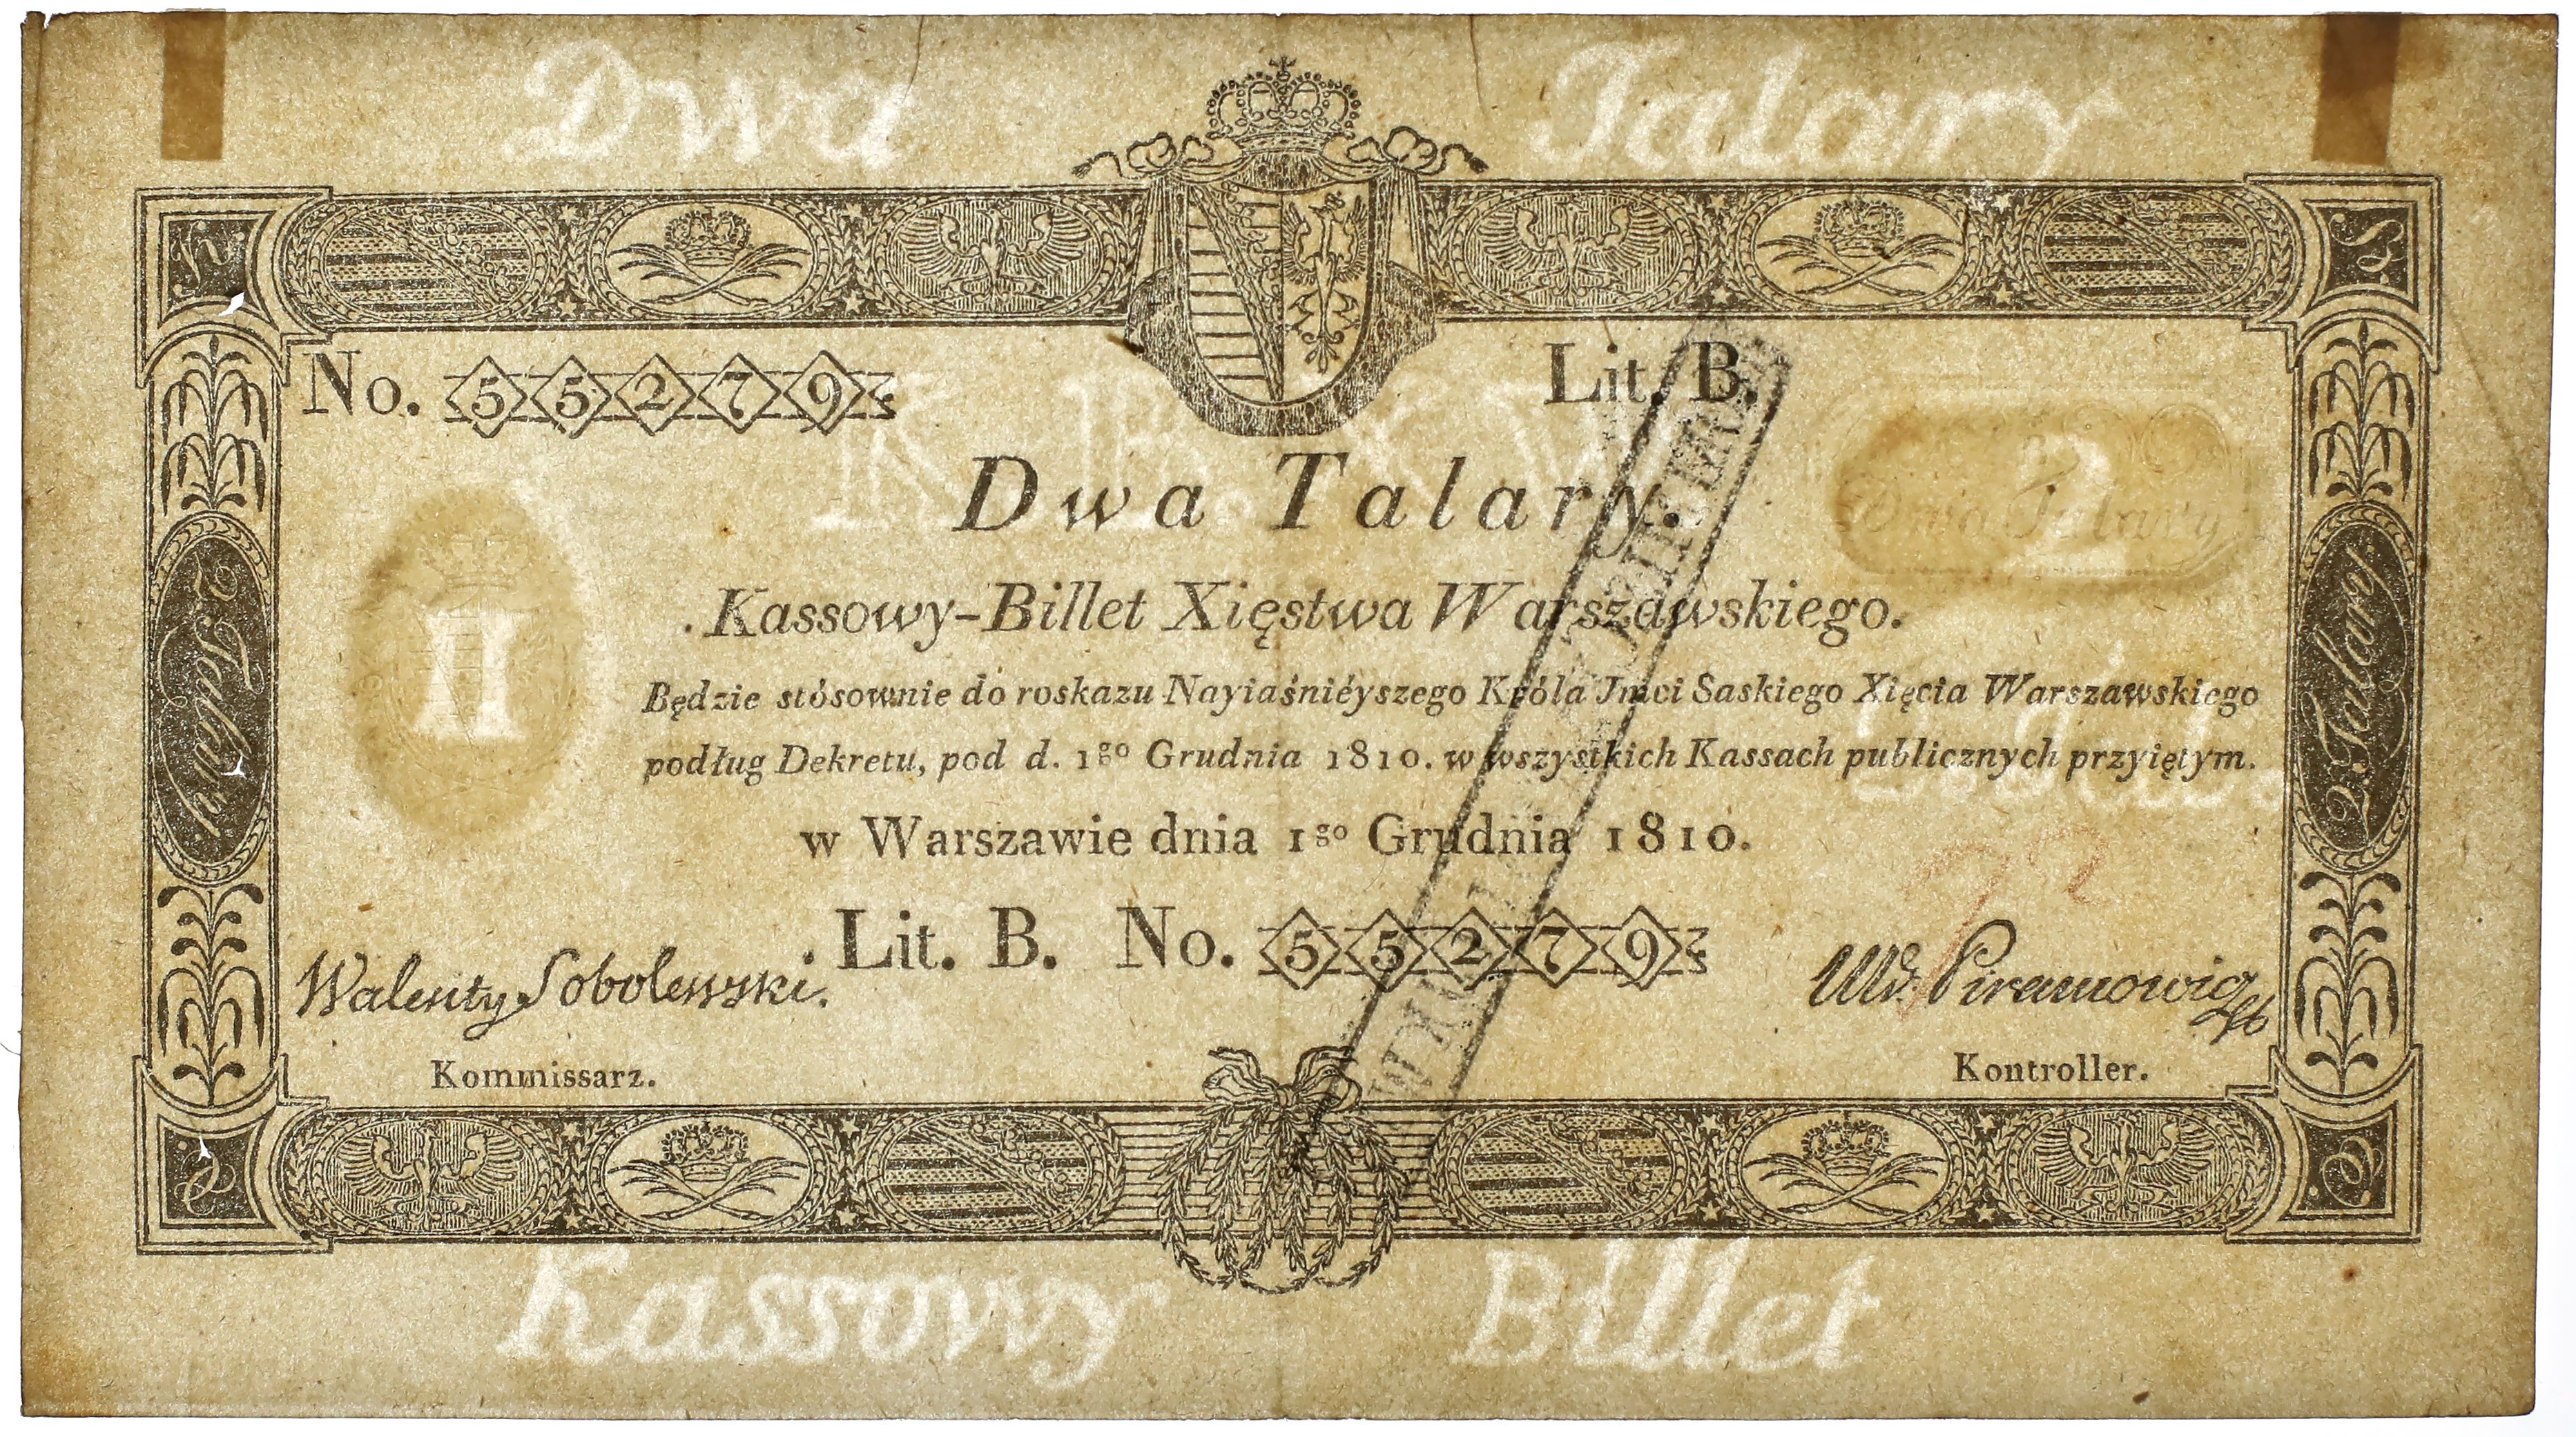 Dwa Talary
No. 55279
Lit. B.
2
Dwa Talary
Dwa Talary.
II
Kassowy-Billet Xięstwa Warszawskiego.
Będzie stósownie do roskazu Nayiaśniéyszego Króla Jmci Saskiego Xięcia Warszawskiego
podług Dekretu, pod d. 1go Grudnia 1810. w wszystkich Kassach publicznych przyiętym.
w Warszawie dnia 1go Grudnia 1810.
Lit. B. No. 55279
Walenty Sobolewski.
Wł. Piramowicz
Kommissarz.
Kontroller.
2. Talary
2. Talary
Kassowy Billet